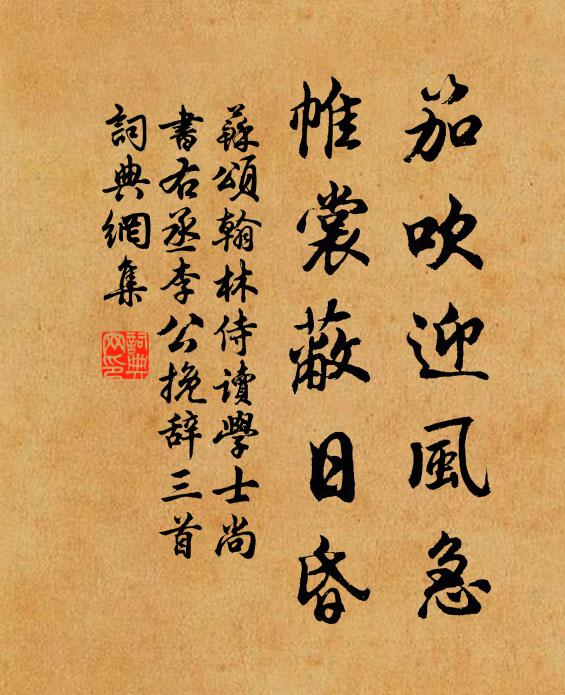 笳吹迎風急
帷裳蔽日昏
蘇頌翰林侍讀學士尚
書右丞李公挽辞三首
詞典網集
詞典網印